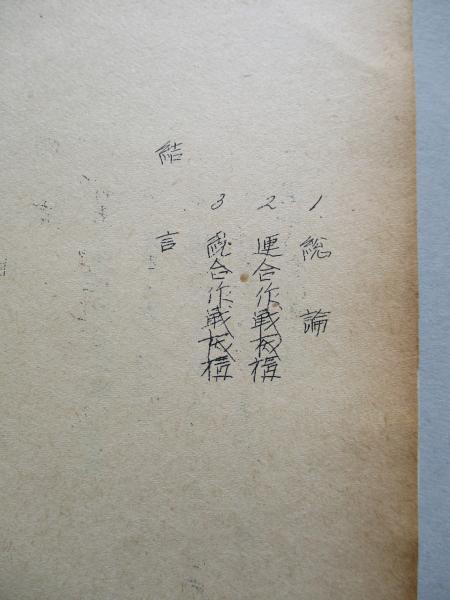 1 総論
2 連合作戦機構
3 統合作戦機構
結言